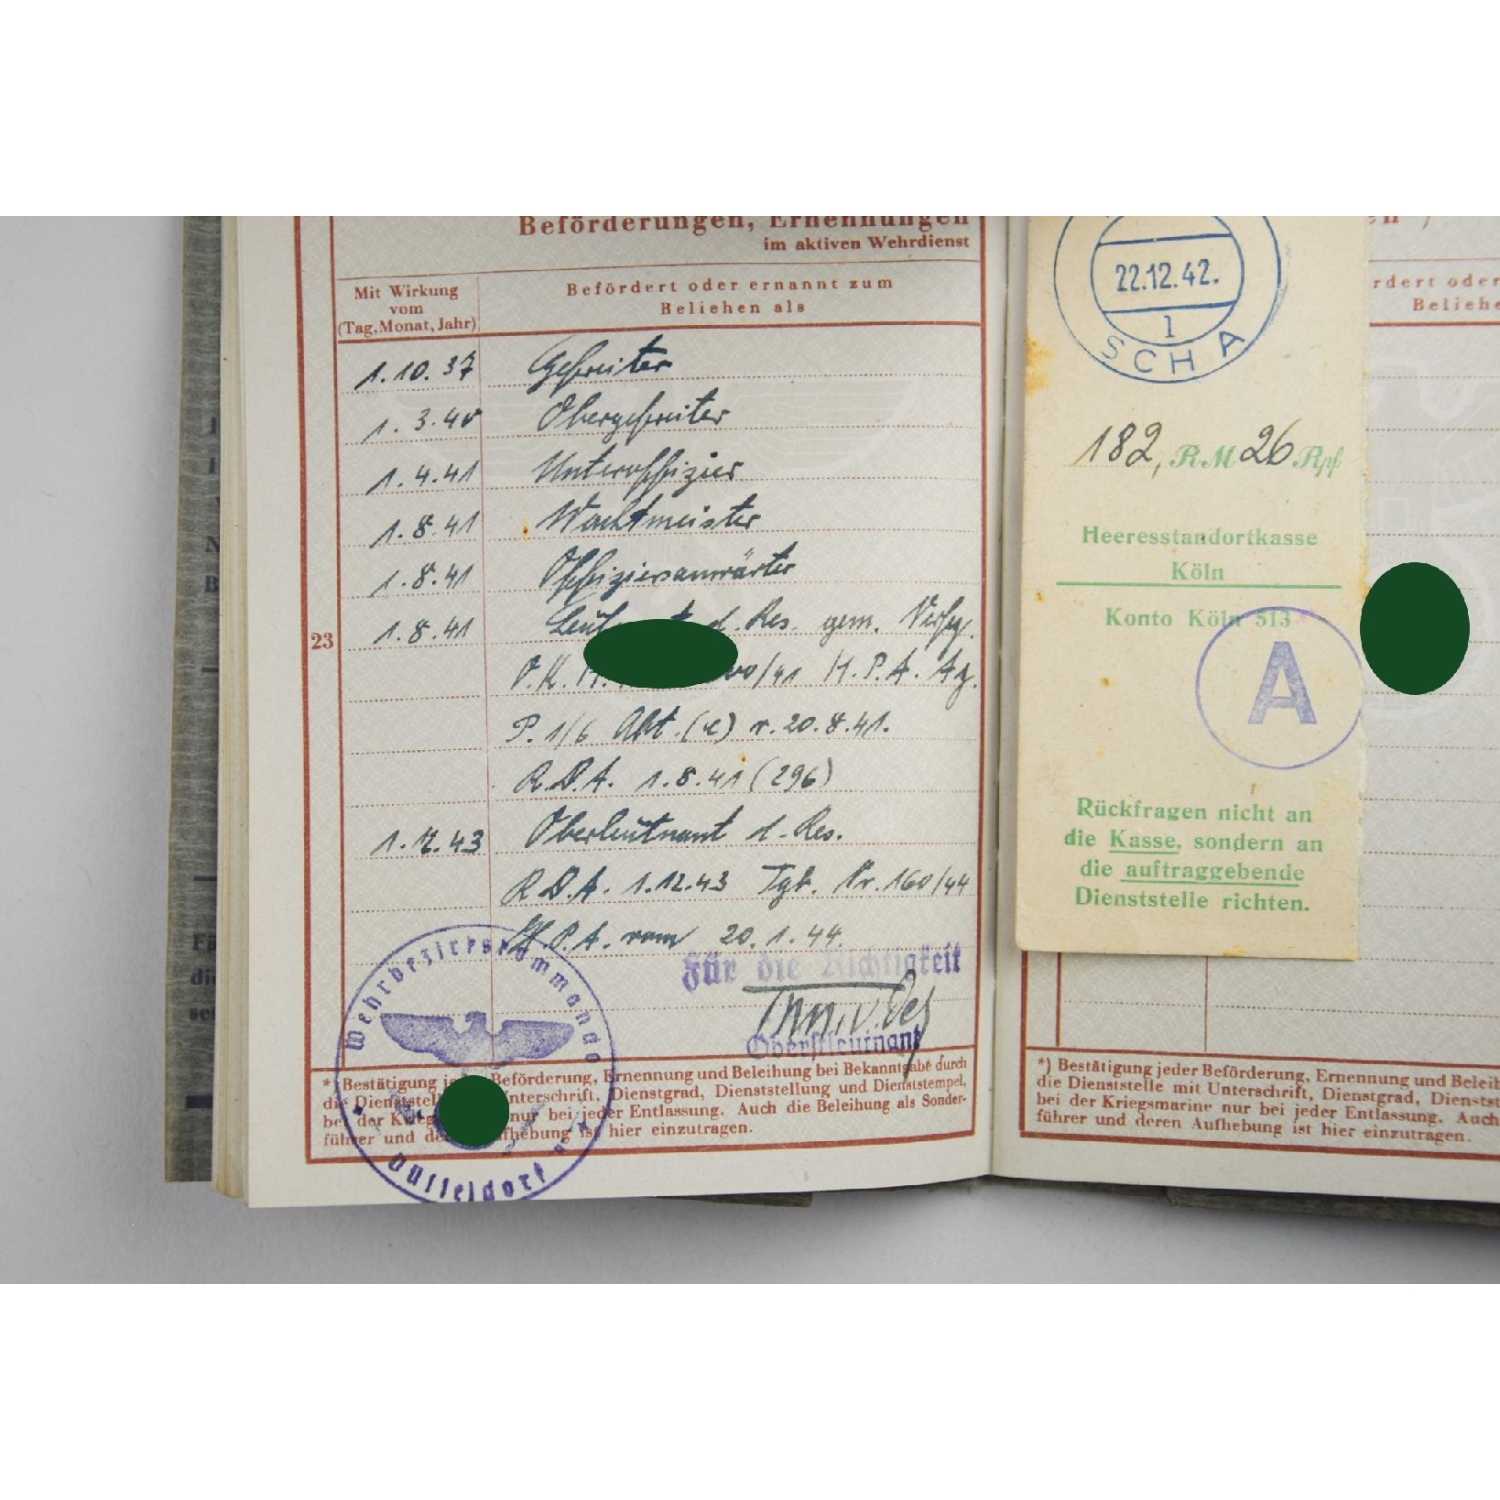 Beförderungen, Ernennungen
im aktiven Wehrdienst
Mit Wirkung
vom
(Tag, Monat, Jahr)
Befördert oder ernannt zum
Beliehen als
1.10.37 Gefreiter
1.3.40 Obergefreiter
1.4.41 Unteroffizier
1.8.41 Wachtmeister
1.8.41 Offiziersanwärter
23
1.8.41 d. Res. gem. Verfg.
O.K.H. /41 H.P.A. Az.
P. 1/6 Abt. v. 20.8.41.
R.D.A. 1.8.41 (296)
1.12.43 Oberleutnant d. Res.
R.D.A. 1.12.43 Tgb. Nr. 160/44
H.P.A. vom 20.1.44.
Für die Richtigkeit
Oberstleutnant
Wehrbezirkskommando
Düsseldorf
*) Bestätigung Beförderung, Ernennung und Beleihung bei Bekanntgabe durch
die Unterschrift, Dienstgrad, Dienststellung und Dienststempel,
bei der nur bei jeder Entlassung. Auch die Beleihung als Sonder-
führer und Aufhebung ist hier einzutragen.
22.12.42.
1
SCHA
182, RM 26 Rpf
Heeresstandortkasse
Köln
Konto Köln 513
A
Rückfragen nicht an
die Kasse, sondern an
die auftraggebende
Dienststelle richten.
oder
*) Bestätigung jeder Beförderung, Ernennung und
die Dienststelle mit Unterschrift, Dienstgrad,
bei der Kriegsmarine nur bei jeder Entlassung. Auch
führer und deren Aufhebung ist hier einzutragen.